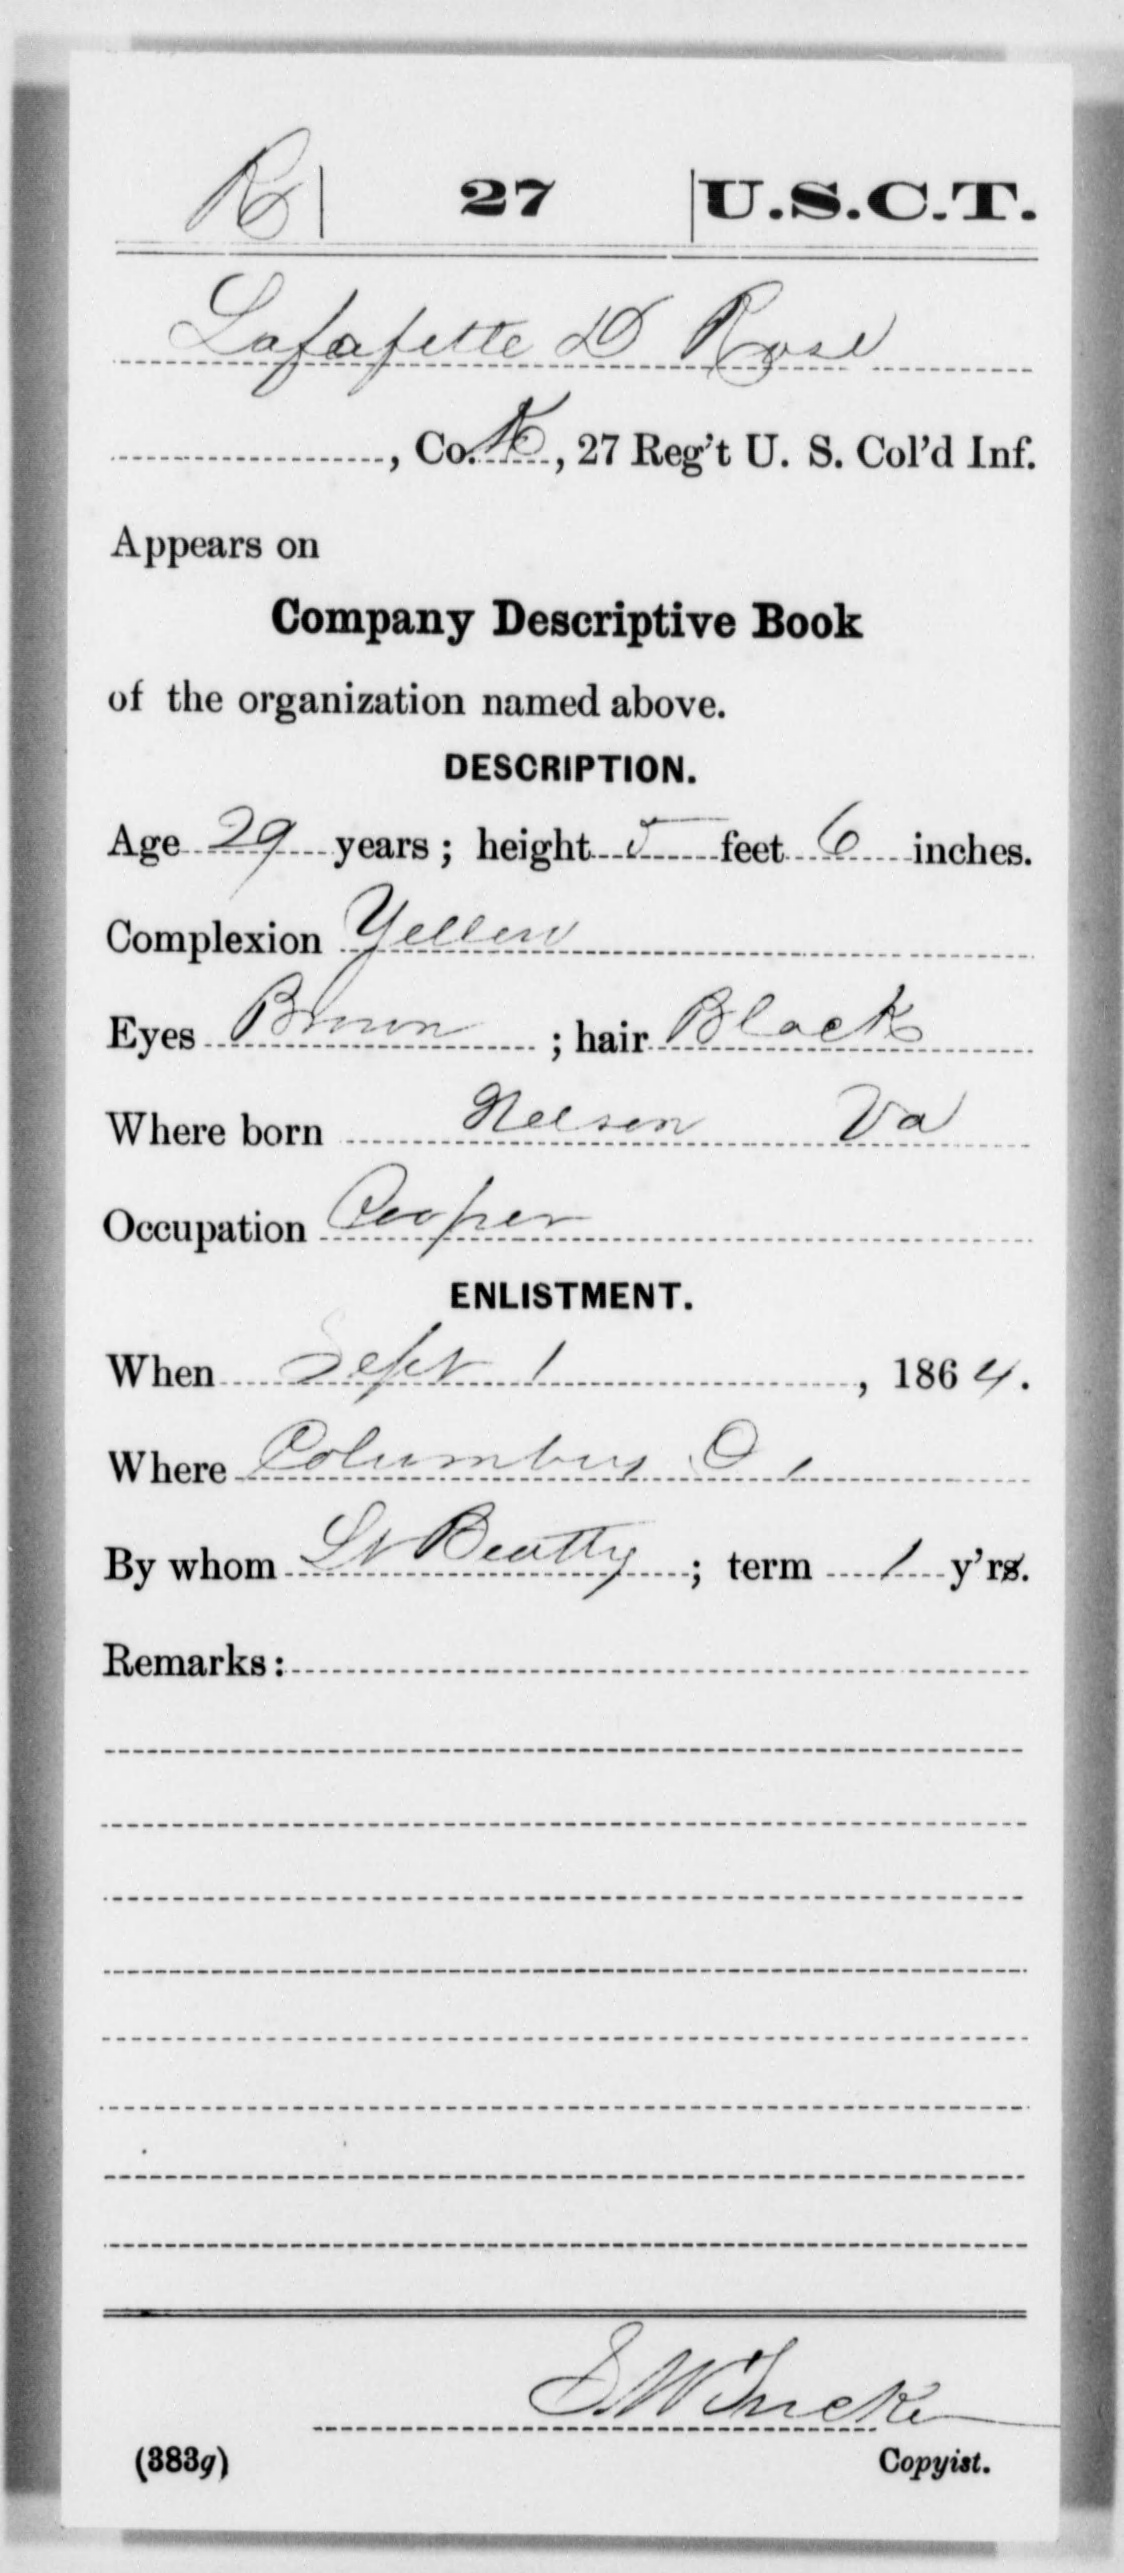 R | 27 | U.S.C.T.
Lafafette D Rose
, Co. K, 27 Reg't U. S. Col'd Inf.
Appears on
Company Descriptive Book
of the organization named above.
DESCRIPTION.
Age 29 years; height 5 feet 6 inches.
Complexion Yellow
Eyes Brown; hair Black
Where born Nelson Va
Occupation Cooper
ENLISTMENT.
When Sept 1, 1864.
Where Columbus O.
By whom Lt Beatty; term 1 y'rs.
Remarks:
S W Tucker
(383g) Copyist.